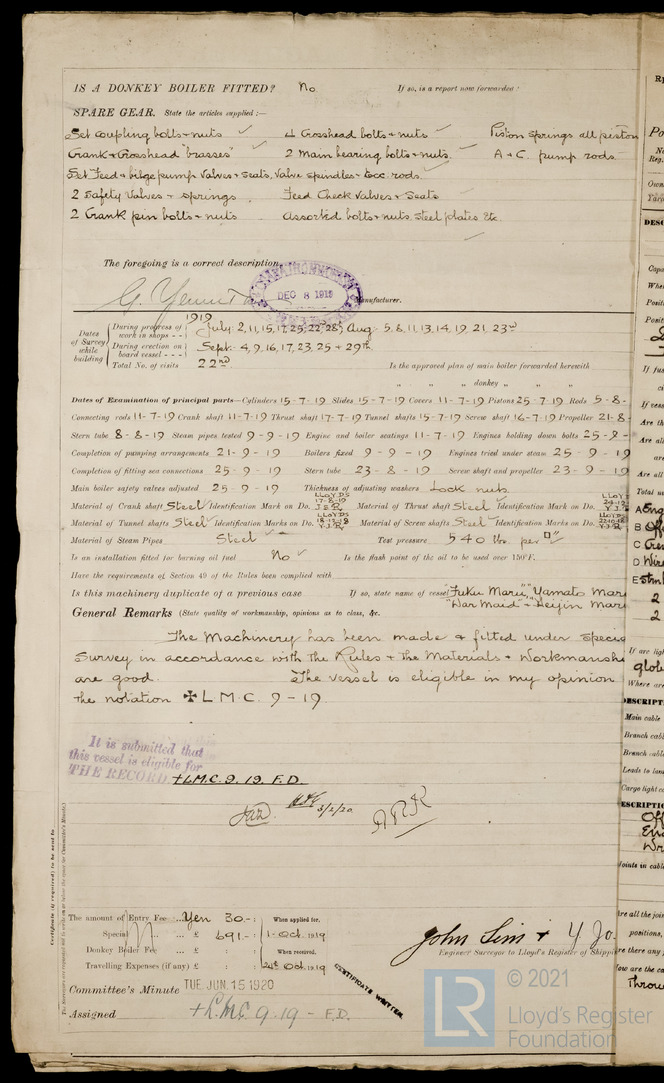 IS A DONKEY BOILER FITTED? No If so, is a report now forwarded?
SPARE GEAR. State the articles supplied:—
Set coupling bolts + nuts ✓ 4 Crosshead bolts + nuts ✓ Piston springs all piston
Crank + Crosshead "brasses" ✓ 2 Main bearing bolts + nuts. ✓ A + C. pump rods.
Set Feed + bilge pump valves + seats, valve spindles + Ecc. rods.
2 Safety Valves + springs Feed Check Valves + Seats
2 Crank pin bolts + nuts Assorted bolts + nuts. Steel plates Etc
The foregoing is a correct description,
DEC 8 1919
Manufacturer.
1919
Dates of Survey while building
During progress of work in shops - - July 2, 11, 15, 17, 25, 22, 28, Aug 5, 8, 11, 13, 14, 19, 21, 23rd
During erection on board vessel - - - Sept. 4, 9, 16, 17, 23, 25 + 29th
Total No. of visits 22nd Is the approved plan of main boiler forwarded herewith
" " " donkey " " "
Dates of Examination of principal parts—Cylinders 15-7-19 Slides 15-7-19 Covers 11-7-19 Pistons 25-7-19 Rods 5-8-
Connecting rods 11-7-19 Crank shaft 11-7-19 Thrust shaft 17-7-19 Tunnel shafts 15-7-19 Screw shaft 16-7-19 Propeller 21-8-
Stern tube 8-8-19 Steam pipes tested 9-9-19 Engine and boiler seatings 11-7-19 Engines holding down bolts 25-9-
Completion of pumping arrangements 21-9-19 Boilers fixed 9-9-19 Engines tried under steam 25-9-19
Completion of fitting sea connections 25-9-19 Stern tube 23-8-19 Screw shaft and propeller 23-9-19
Main boiler safety valves adjusted 25-9-19 Thickness of adjusting washers Lock nuts
Material of Crank shaft Steel Identification Mark on Do. LLOYDS 17-8-19 Material of Thrust shaft Steel Identification Mark on Do. LLOYDS
Material of Tunnel shafts Steel Identification Marks on Do. LLOYDS Material of Screw shafts Steel Identification Marks on Do. LLOYDS
Material of Steam Pipes Steel ✓ Test pressure 540 lbs. per □"
Is an installation fitted for burning oil fuel No ✓ Is the flash point of the oil to be used over 150°F.
Have the requirements of Section 49 of the Rules been complied with
Is this machinery duplicate of a previous case If so, state name of vessel "Fuku Maru," "Yamato Maru
"War Maid" + Heijin Maru
General Remarks (State quality of workmanship, opinions as to class, &c.
The Machinery has been made & fitted under Specia
Survey in accordance with the Rules + the Materials + Workmanshi
are good. The vessel is eligible in my opinion
the notation ✠ L.M.C. 9-19
It is submitted that
this vessel is eligible for
THE RECORD + L.M.C. 9. 19. F.D.
3/2/20
Certificate (if required) to be sent to
The amount of Entry Fee ... Yen 30.-: When applied for,
Special ... £ 691.-: 1-Oct. 1919
Donkey Boiler Fee ... £ : : When received,
Travelling Expenses (if any) £ : : 24th Oct. 1919
John Sim + Y Jo
Engineer Surveyor to Lloyd's Register of Shippi
Committee's Minute TUE. JUN. 15 1920
CERTIFICATE WRITTEN.
Assigned + L.M.C. 9.19 - F.D.
LR © 2021
Lloyd's Register
Foundation